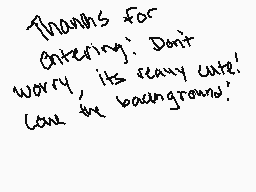 Thanks for
entering! Don't
worry, its really cute!
Love the background!